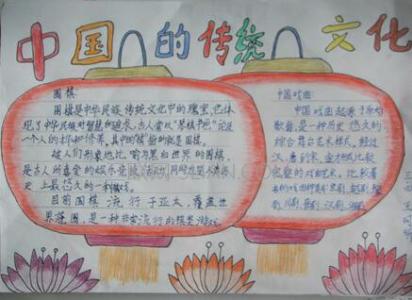 中国的传统文化
围棋
围棋是中华民族传统文化中的瑰宝,它体
现了中华民族对智慧的追求,古人常以“琴棋书画”论及
一个人的才华和修养,其中的“棋”指的就是围棋。
被人们形象地比喻为黑白世界的围棋,
是古人所喜爱的娱乐竞技活动,同时也是人类历
史上最悠久的一种棋戏。
目前围棋流行于亚太,覆盖世
界范围,是一种非常流行的棋类游戏。
中国戏曲
中国戏曲起源于原始
歌舞,是一种历史悠久的
综合舞台艺术样式。经过
汉、唐到宋、金才形成比较
完整的戏曲艺术,比较著
名的戏曲种类有